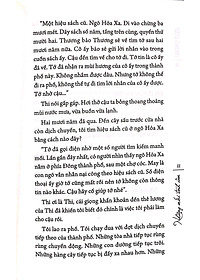 "Một hiệu sách cũ. Ngõ Hỏa Xa. Đi vào chừng ba
mươi mét. Dãy sách số năm, tầng trên cùng, quyển thứ
mười hai. Thương bảo Thương sẽ về tìm tớ sau hai
mươi năm nữa. Cô ấy bảo sẽ gửi lời nhắn vào trong
cuốn sách ấy. Cậu đến tìm về cho tớ đi. Tớ tin là cô ấy
đã về. Tớ đã nhận ra mùi hương của cô ấy trong thành phố
này. Không nhầm được đâu. Nhưng tớ không thể
đi ra phố, không thể tự đi tìm lời nhắn của cô ấy được.
Tớ nhờ cậu..."
Thi nói gấp gáp. Hơi thở cậu ta bỗng thoang thoảng
mùi nước mưa, vừa buồn vừa lạnh.
Hai mươi năm đã qua. Đến cây sấu trước cửa nhà
còn dịch chuyển, tôi tìm hiệu sách cũ ở ngõ Hỏa Xa
bằng cách nào đây?
"Tớ đã gọi điện nhờ một số người tìm kiếm manh
mối. Lần gần đây nhất, có người nhìn thấy ngõ Hỏa Xa
nằm ở phía Đông thành phố, sau một chợ cóc. May là
con ngõ vẫn nai nịt cõng theo hiệu sách cũ. Số điện
thoại ấy giờ tớ cũng mất rồi nên tớ không còn thông tin
nào khác. Cậu hãy cố giúp tớ nhé".
Thi ơi là Thi, cái giọng khẩn khoản đến thê lương
của Thi đã khiến tôi biết đó chính là việc tôi phải làm
cho cậu rồi.
Tôi lao ra phố. Tôi chạy đua với đợt dịch chuyển
tiếp theo của thành phố. Những tòa nhà lại rùng rùng
rùng chuyển động. Những con đường tiếp tục trôi.
Những hàng cây tiếp tục bị đẩy xa nhau hơn. Những